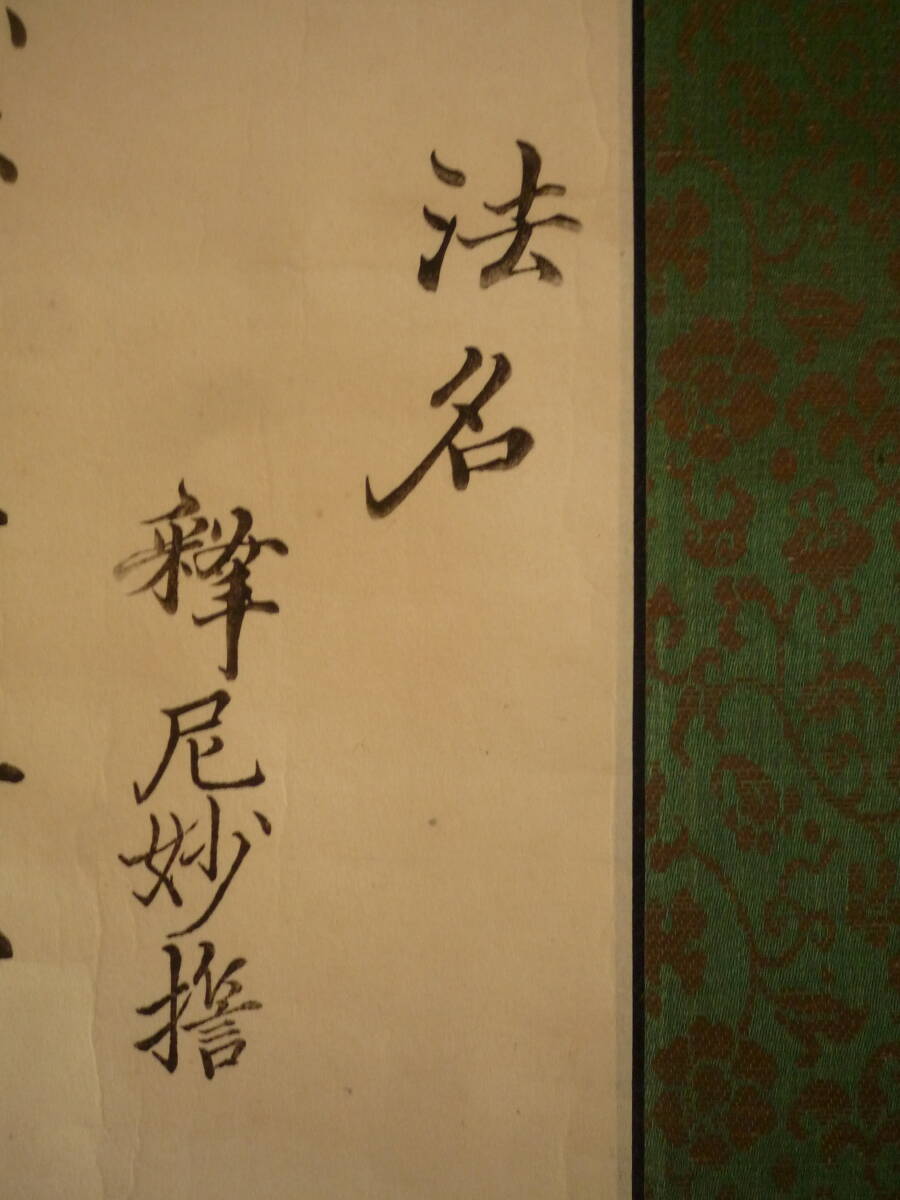 法名
釋尼妙擔